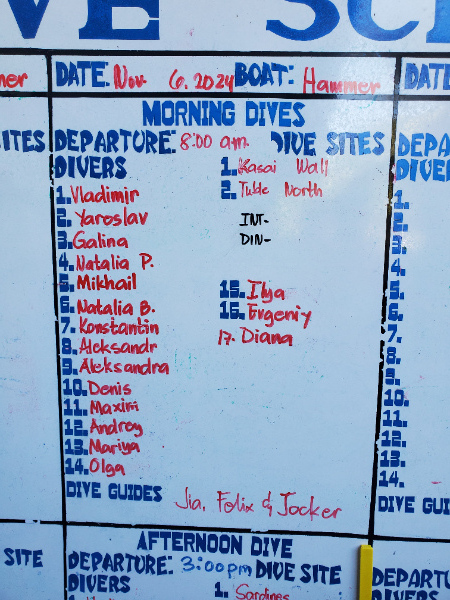 DATE: Nov 6, 2024 BOAT: Hammer
MORNING DIVES
DEPARTURE: 8:00 a.m. DIVE SITES
DIVERS
1. Kasai Wall
2. Tuble North
INT-
DIN-
1. Vladimir
2. Yaroslav
3. Galina
4. Natalia P.
5. Mikhail
6. Natalia B.
7. Konstantin
8. Aleksandr
9. Aleksandra
10. Denis
11. Maxim
12. Andrey
13. Mariya
14. Olga
15. Ilya
16. Evgeniy
17. Diana
DIVE GUIDES Jia, Felix & Jocker
AFTERNOON DIVE
DEPARTURE: 3:00pm DIVE SITE
DIVERS 1. Sardines
SITES
SITE
DATE
1.
2.
3.
4.
5.
6.
7.
8.
9.
10.
11.
12.
13.
14.
DEPARTURE
DIVERS